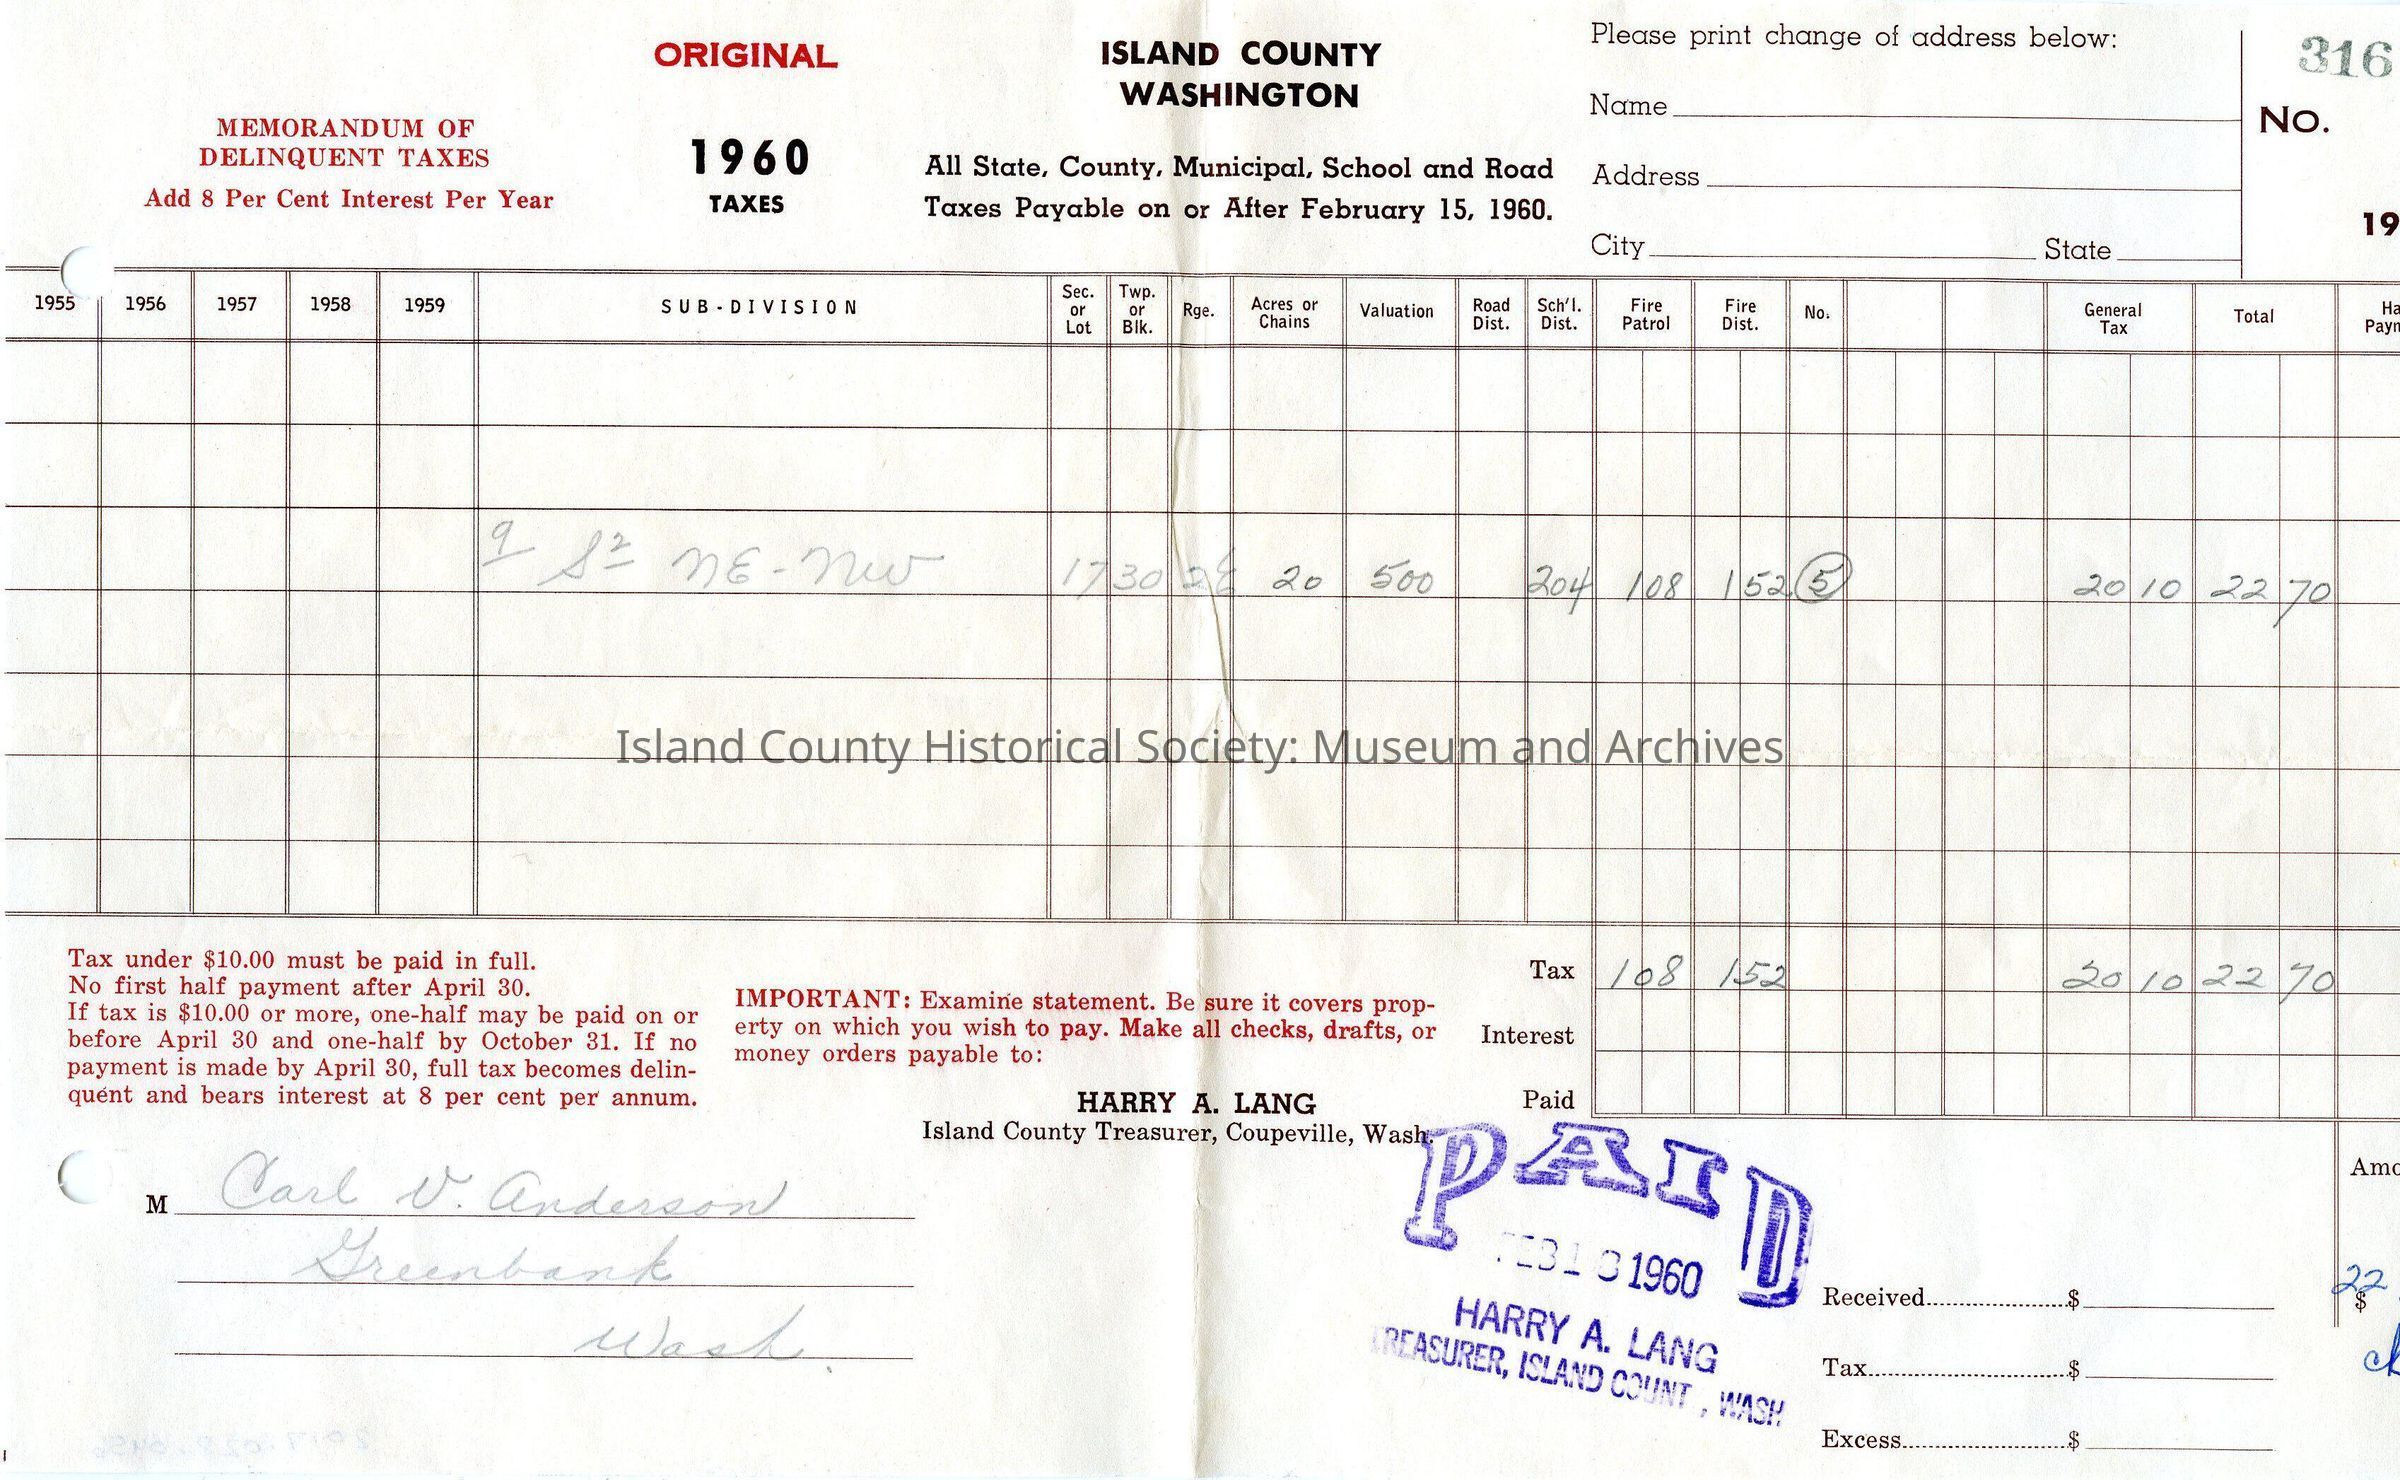 ORIGINAL
MEMORANDUM OF
DELINQUENT TAXES
Add 8 Per Cent Interest Per Year
1960
TAXES
ISLAND COUNTY
WASHINGTON
All State, County, Municipal, School and Road
Taxes Payable on or After February 15, 1960.
Please print change of address below:
Name
Address
City State
316
No.
19
1955 1956 1957 1958 1959 SUB-DIVISION Sec. or Lot Twp. or Blk. Rge. Acres or Chains Valuation Road Dist. Sch'l. Dist. Fire Patrol Fire Dist. No. General Tax Total
9 S2 NE-NW 17 30 2E 20 500 204 1 08 1 52 5 20 10 22 70
Island County Historical Society: Museum and Archives
Tax under $10.00 must be paid in full.
No first half payment after April 30.
If tax is $10.00 or more, one-half may be paid on or
before April 30 and one-half by October 31. If no
payment is made by April 30, full tax becomes delin-
quent and bears interest at 8 per cent per annum.
IMPORTANT: Examine statement. Be sure it covers prop-
erty on which you wish to pay. Make all checks, drafts, or
money orders payable to:
HARRY A. LANG
Island County Treasurer, Coupeville, Wash.
Tax 1 08 1 52 20 10 22 70
Interest
Paid
M Carl V. Anderson
Greenbank
Wash.
PAID
1960
HARRY A. LANG
TREASURER, ISLAND COUNT , WASH
Received $
Tax $
Excess $
22
$